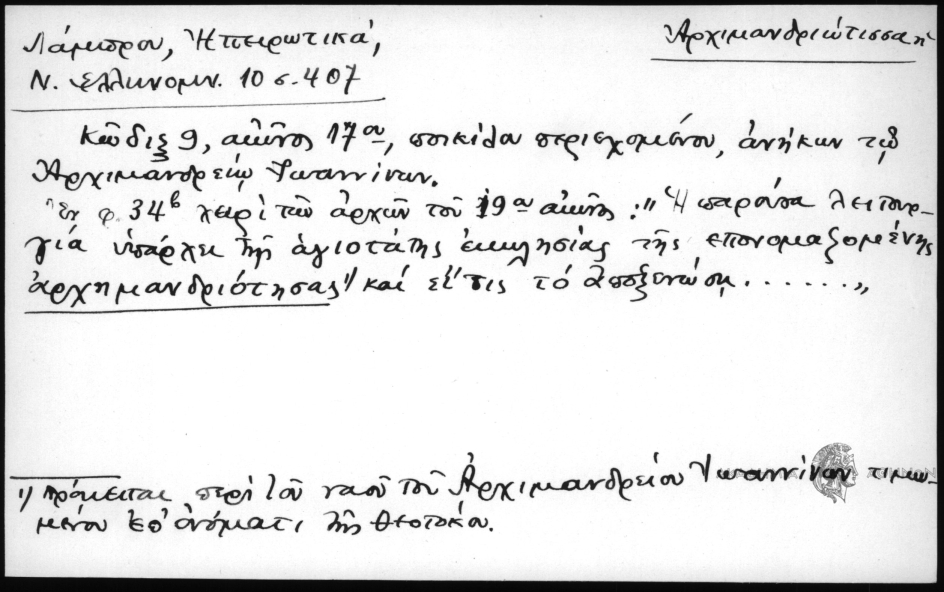 Λάμπρου, Ἠπειρωτικά,
Ν. Ἑλληνομν. 10 σ. 407
Ἀρχιμανδριώτισσα ἡ
Κῶδιξ 9, αἰῶνος 17ου, ποικίλου περιεχομένου, ἀνήκων τῷ
Ἀρχιμανδρείῳ Ἰωαννίνων.
Ἐν φ. 34β χειρὶ τῶν ἀρχῶν τοῦ 19ου αἰῶνος : "Ἡ παροῦσα λειτουρ-
γία ὑπάρχει τῆς ἁγιοτάτης ἐκκλησίας τῆς επονομαζομένης
ἀρχημανδριότησας 1) καί εἴ τις τό ἀποξενώσῃ ......"
1) Πρόκειται περί τοῦ ναοῦ τοῦ Ἀρχιμανδρείου Ἰωαννίνων τιμω-
μένου ἐπ' ὀνόματι τῆς Θεοτόκου.